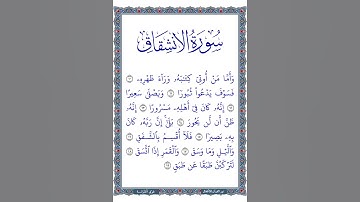 سُورَةُ الِانْشِقَاقِ
وَأَمَّا مَنْ أُوتِيَ كِتَٰبَهُۥ وَرَآءَ ظَهْرِهِۦ
فَسَوْفَ يَدْعُوا۟ ثُبُورًا وَيَصْلَىٰ سَعِيرًا
إِنَّهُۥ كَانَ فِىٓ أَهْلِهِۦ مَسْرُورًا إِنَّهُۥ
ظَنَّ أَن لَّن يَحُورَ بَلَىٰٓ إِنَّ رَبَّهُۥ كَانَ
بِهِۦ بَصِيرًا فَلَآ أُقْسِمُ بِٱلشَّفَقِ
وَٱلَّيْلِ وَمَا وَسَقَ وَٱلْقَمَرِ إِذَا ٱتَّسَقَ
لَتَرْكَبُنَّ طَبَقًا عَن طَبَقٍ